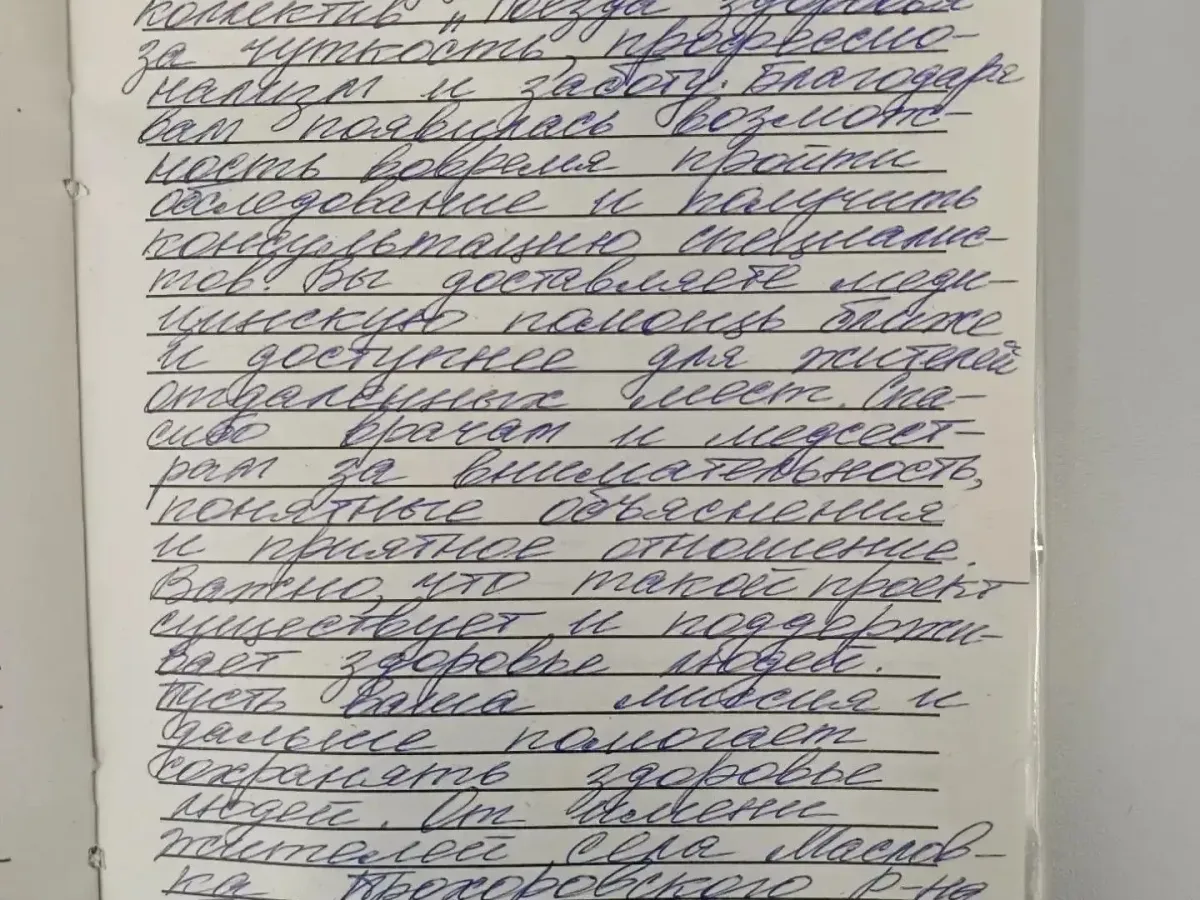 коллектив „ Поезда здоровья
за чуткость, профессио-
нализм и заботу. Благодаря
вам появилась возмож-
ность вовремя пройти
обследование и получить
консультацию специалис-
тов. Вы доставляете меди-
цинскую помощь ближе
и доступнее для жителей
отдаленных мест. Спа-
сибо врачам и медсест-
рам за внимательность,
понятные объяснения
и приятное отношение.
Важно, что такой проект
существует и поддержи-
вает здоровье людей.
Пусть ваша миссия и
дальше помогает
сохранять здоровье
людей. От имени
жителей села Маслов-
ка Прохоровского р-на